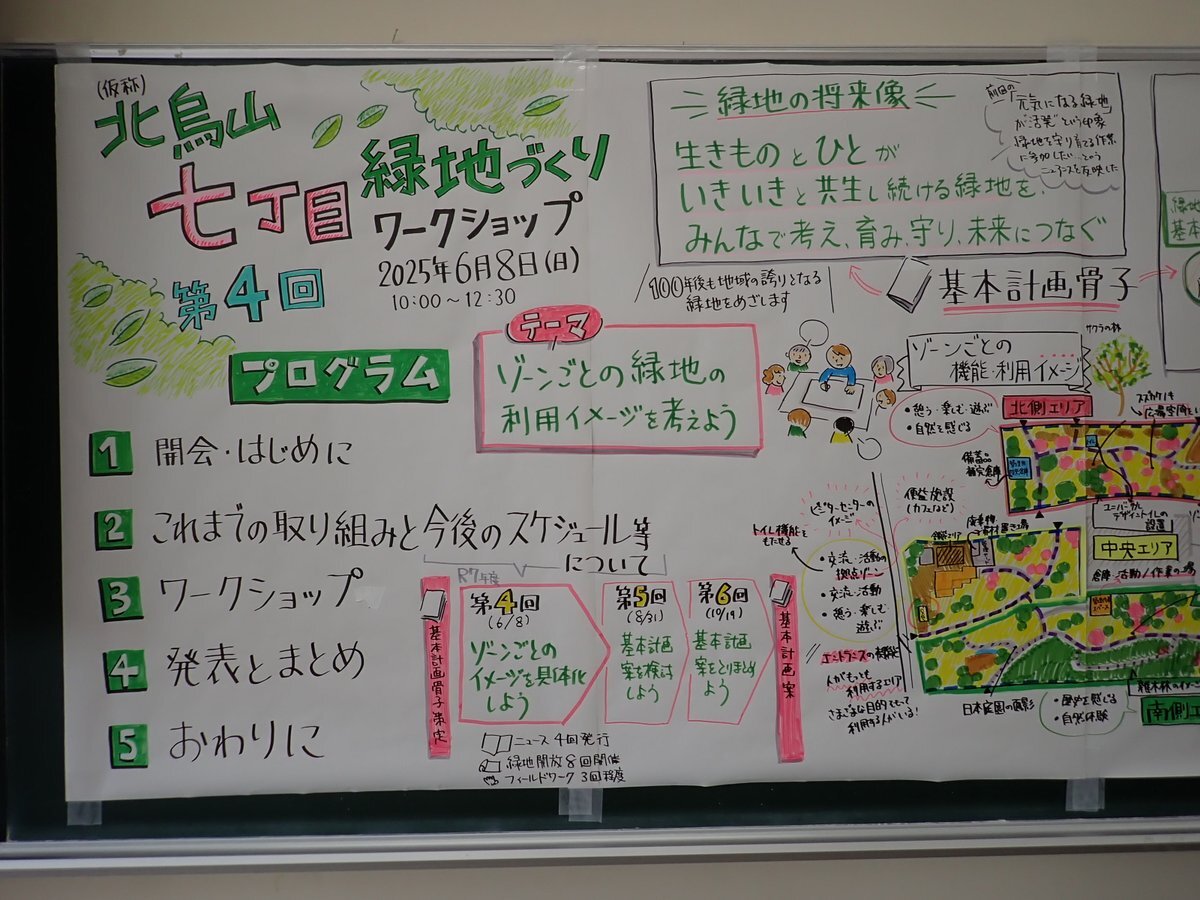 (仮称)
北烏山
七丁目
緑地づくり
ワークショップ
第4回
2025年6月8日(日)
10:00～12:30
プログラム
1 開会・はじめに
2 これまでの取り組みと今後のスケジュール等
について
3 ワークショップ
4 発表とまとめ
5 おわりに
テーマ
ゾーンごとの緑地の
利用イメージを考えよう
R7年度
基本計画骨子策定
第4回
(6/8)
ゾーンごとの
イメージを具体化
しよう
第5回
(8/31)
基本計画
案を検討
しよう
第6回
(10/19)
基本計画
案をとりまとめ
よう
基本計画案
ニュース 4回発行
緑地開放 8回開催
フィールドワーク 3回程度
緑地の将来像
生きものとひとが
いきいきと共生し続ける緑地を、
みんなで考え、育み、守り、未来につなぐ
前回の
「元気になる緑地」
が"活発"という印象
緑地を守り育てる作業
に参加したい…という
ニュアンスを反映した
100年後も地域の誇りとなる
緑地をめざします
基本計画骨子
ゾーンごとの
機能・利用イメージ
サクラの林
北側エリア
・憩う・楽しむ・遊ぶ
・自然を感じる
スズカケノキ
備蓄品
補完倉庫
ユニバーサル
デザイントイレの
設置
中央エリア
倉庫・活動/作業の場
ビジターセンターの
イメージ
便益施設
(カフェなど)
トイレ機能を
もたせる
・交流・活動の
拠点ゾーン
・交流・活動
・憩う・楽しむ・
遊ぶ
エントランスの機能
人がもっとも
利用するエリア
さまざまな目的でもって
利用する人がいる!
日本庭園の面影
・歴史を感じる
・自然体験
雑木林のイメージ
南側エ
緑地
基本